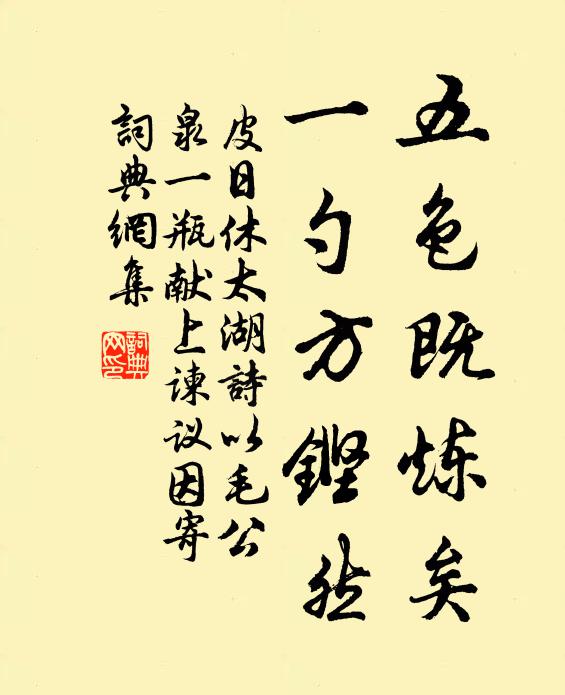 五色既炼矣
一勺方鏗然
皮日休太湖詩以毛公
泉一瓶献上谏议因寄
詞典網集
詞典网印